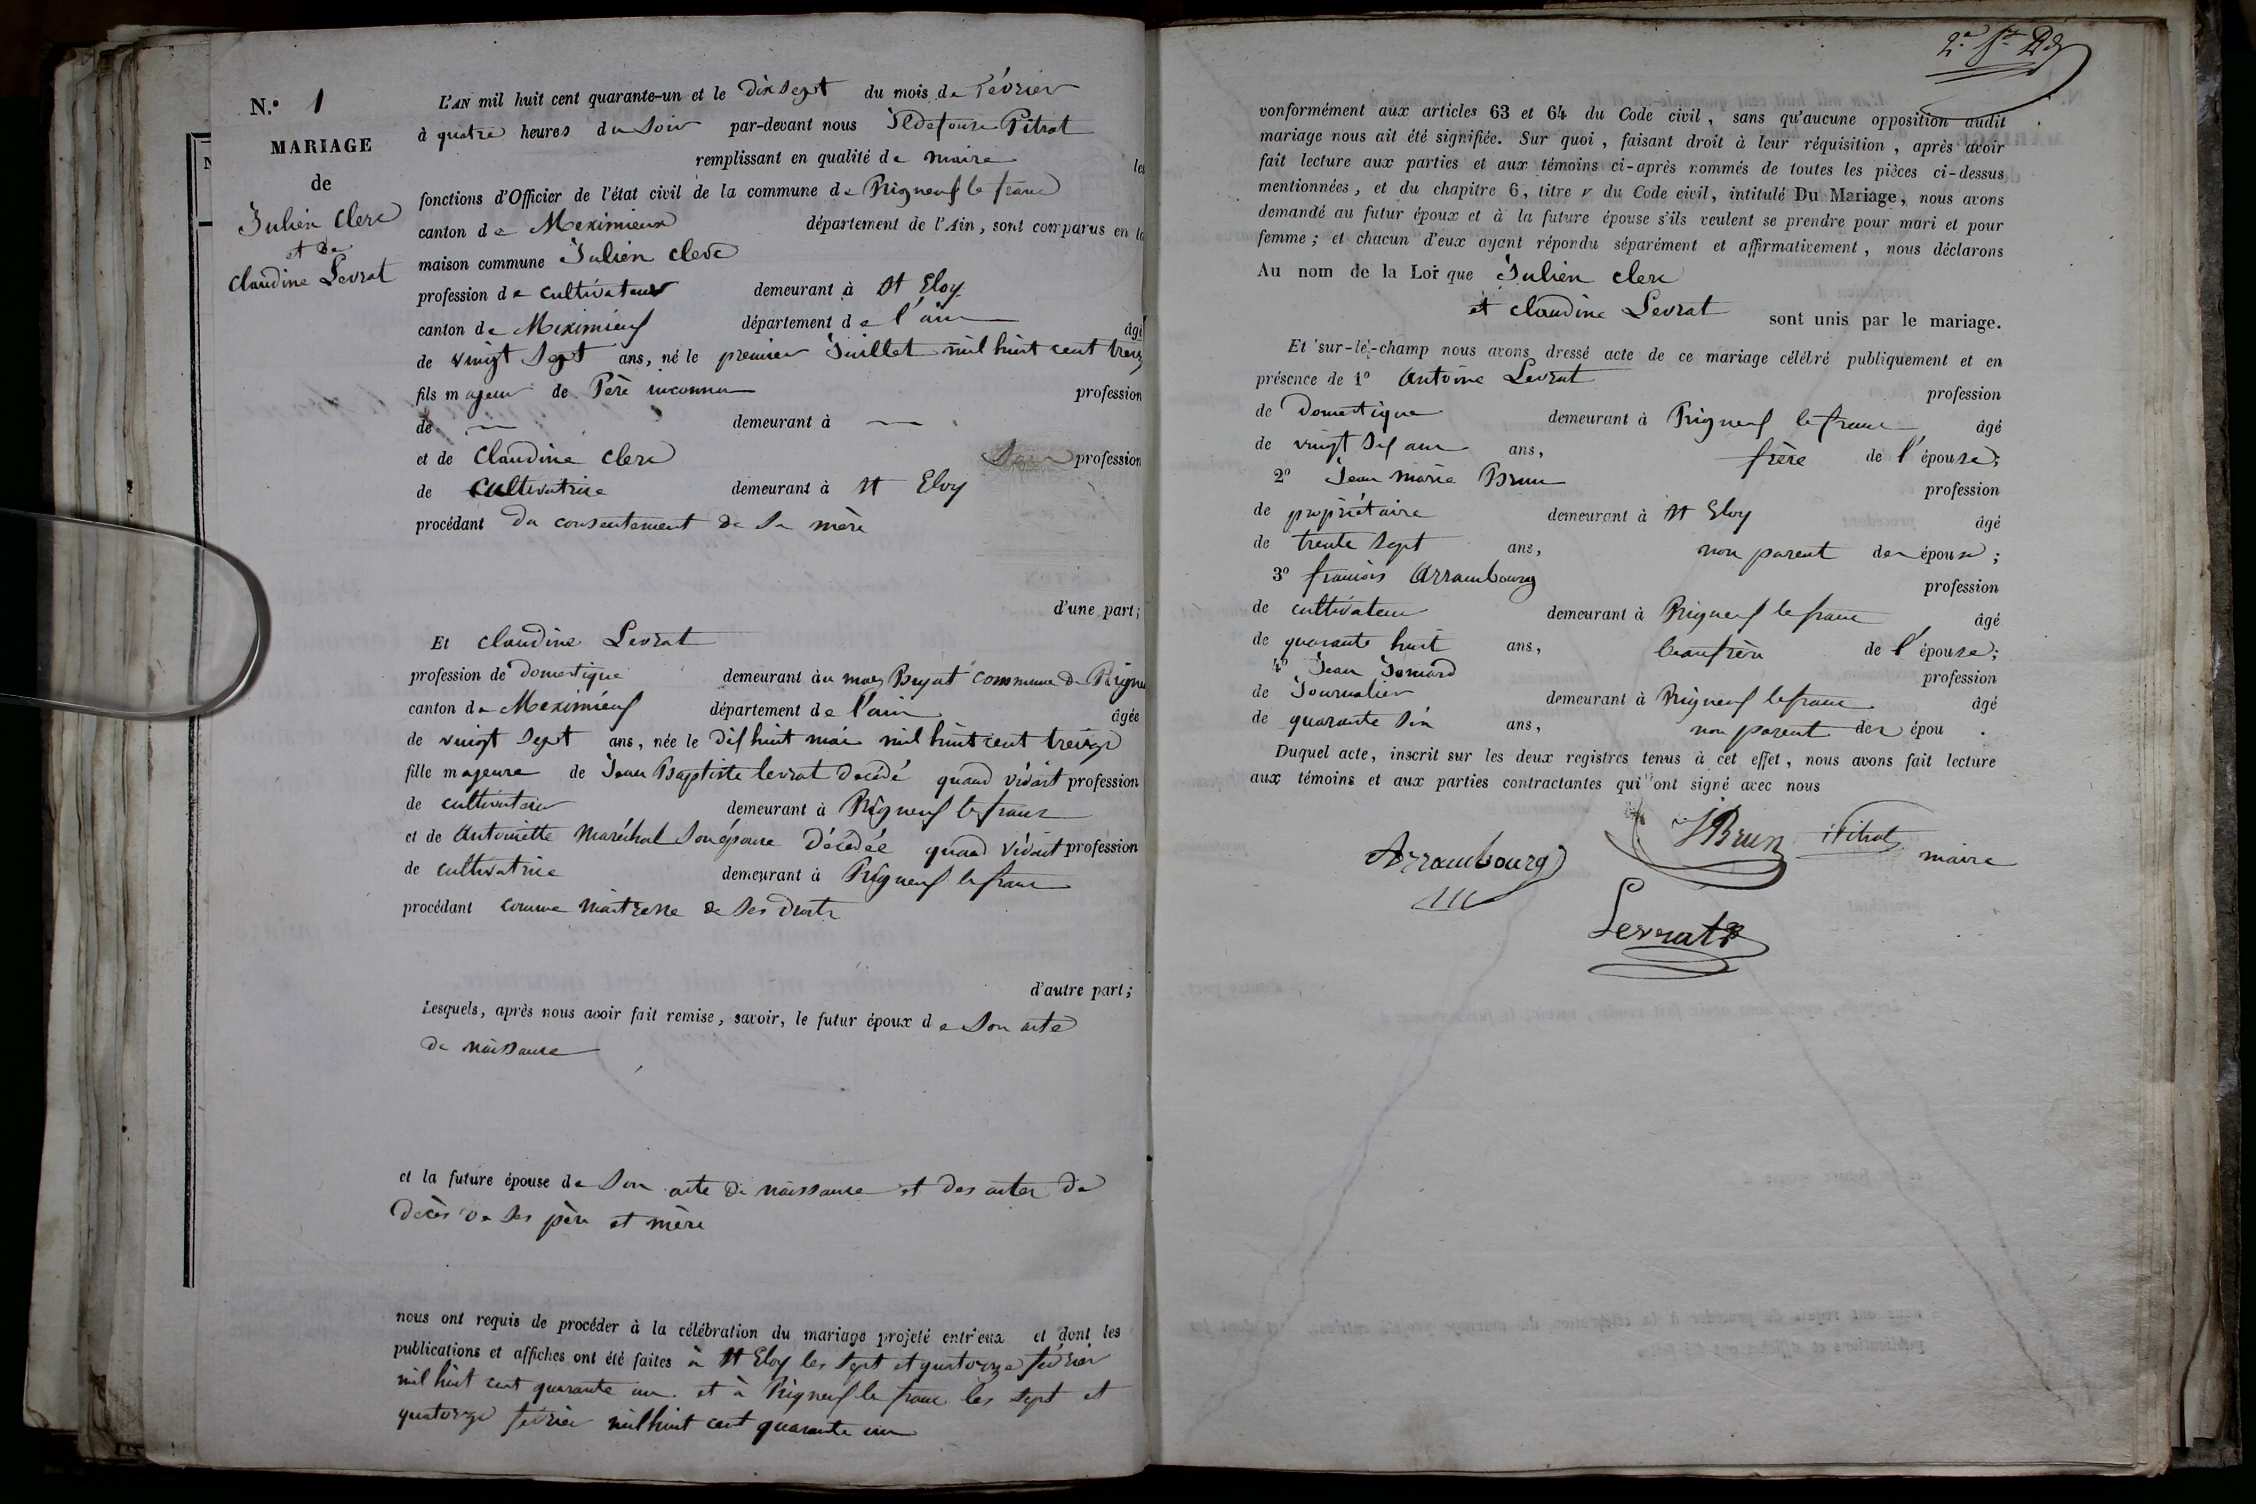 N.º 1
MARIAGE
de
Julien Clerc
et de
Claudine Levrat
L'AN mil huit cent quarante-un et le dix sept du mois de Février
à quatre heures du soir par-devant nous Ildefonse Pitrat
remplissant en qualité de maire les
fonctions d'Officier de l'état civil de la commune de Rigneux le franc
canton de Meximieux département de l'Ain, sont comparus en la
maison commune Julien clerc
profession de cultivateur demeurant à St Eloy
canton de Meximieux département de l'ain âgé
de vingt sept ans, né le premier Juillet mil huit cent treize
fils majeur de Père inconnu profession
de — demeurant à —
et de Claudine Clerc profession
de cultivatrice demeurant à St Eloy
procédant du consentement de sa mère
d'une part;
Et claudine Levrat
profession de domestique demeurant au mas Bryat commune de Rigneu
canton de Meximieux département de l'ain âgée
de vingt sept ans, née le dix huit mai mil huit cent treize
fille majeure de Jean Baptiste levrat décédé quand vivait profession
de cultivateur demeurant à Rigneux le franc
et de Antoinette Maréchal son épouse décédée quand vivait profession
de cultivatrice demeurant à Rigneux le franc
procédant comme maitresse de ses droits
d'autre part;
Lesquels, après nous avoir fait remise, savoir, le futur époux de son acte
de naissance
et la future épouse de son acte de naissance et des actes de
décès de ses père et mère
nous ont requis de procéder à la célébration du mariage projeté entr'eux et dont les
publications et affiches ont été faites à St Eloy les sept et quatorze février
mil huit cent quarante un et à Rigneux le franc les sept et
quatorze février mil huit cent quarante un
vonformément aux articles 63 et 64 du Code civil, sans qu'aucune opposition audit
mariage nous ait été signifiée. Sur quoi, faisant droit à leur réquisition, après avoir
fait lecture aux parties et aux témoins ci-après nommés de toutes les pièces ci-dessus
mentionnées, et du chapitre 6, titre v du Code civil, intitulé Du Mariage, nous avons
demandé au futur époux et à la future épouse s'ils veulent se prendre pour mari et pour
femme; et chacun d'eux ayant répondu séparément et affirmativement, nous déclarons
Au nom de la Loi que Julien clerc
et claudine Levrat sont unis par le mariage.
Et sur-le-champ nous avons dressé acte de ce mariage célébré publiquement et en
présence de 1º Antoine Levrat profession
de Domestique demeurant à Rigneux le franc âgé
de vingt six ans ans, frère de l'épouse;
2º Jean Marie Brun profession
de propriétaire demeurant à St Eloy âgé
de trente sept ans, non parent des épous;
3º francois Arrambourg profession
de cultivateur demeurant à Rigneux le franc âgé
de quarante huit ans, beaufrère de l'épouse;
4º Jean Jomard profession
de Journalier demeurant à Rigneux le franc âgé
de quarante six ans, non parent des épou .
Duquel acte, inscrit sur les deux registres tenus à cet effet, nous avons fait lecture
aux témoins et aux parties contractantes qui ont signé avec nous
Arrambourg Brun Pitrat maire
Levrat